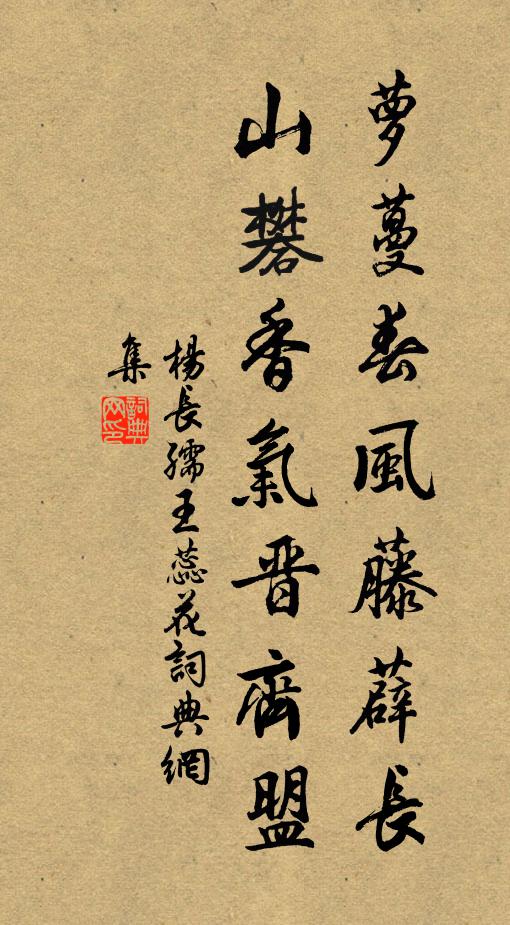 萝蔓春風藤薜長
山礬香氣晋齊盟
楊長孺玉蕊花詞典網
集
詞典网印